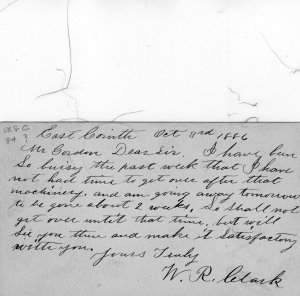 East Corinth Oct 3rd 1886
Mr Gordon Dear Sir I have ben
So buisy the past week that I have
not had time to get over after that
machinery, and am going away tomorrow
to be gone about 2 weeks, so shall not
get over until that time, but will
See you then and make it Satisfactory
with you.
Yours Truly
W. R. Clark